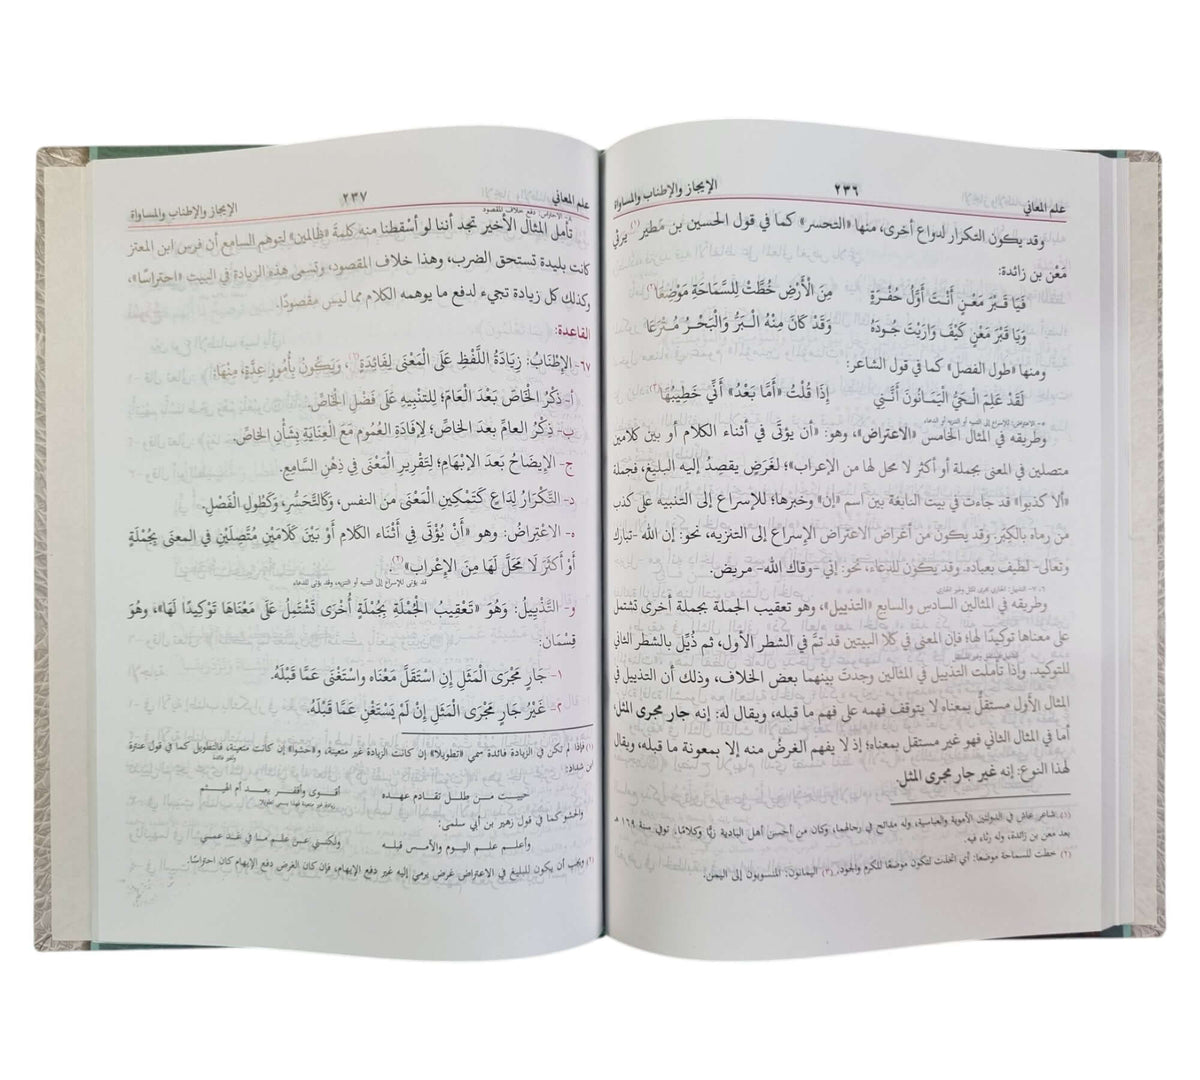 علم المعاني ٢٣٦ الإيجاز والإطناب والمساواة
وقد يكون التكرار لدواع أخرى، منها «التحسر» كما في قول الحسين بن مطير(١) يرثي
مَعْن بن زائدة:
فَيَا قَبْرَ مَعْنٍ أَنْتَ أَوَّلُ حُفْرَةٍ مِنَ الْأَرْضِ خُطَّتْ لِلسَّمَاحَةِ مَوْضِعَا(٢)
وَيَا قَبْرَ مَعْنٍ كَيْفَ وَارَيْتَ جُودَهُ وَقَدْ كَانَ مِنْهُ الْبَرُّ وَالْبَحْرُ مُتْرَعَا
ومنها «طول الفصل» كما في قول الشاعر:
لَقَدْ عَلِمَ الْحَيُّ الْيَمَانُونَ أَنَّنِي إِذَا قُلْتُ «أَمَّا بَعْدُ» أَنِّي خَطِيبُهَا(٣)
وطريقه في المثال الخامس «الاعتراض»، وهو: أن يؤتَى في أثناء الكلام أو بين كلامين
متصلين في المعنى بجملة أو أكثر لا محل لها من الإعراب»؛ لغَرَضٍ يقصِدُ إليه البليغ، فجملة
«ألا كذبوا» قد جاءت في بيت النابغة بين اسم «إن» وخبرها؛ للإسراع إلى التنبيه على كذب
من رماه بالكِبَر. وقد يكون من أغراض الاعتراض الإسراع إلى التنزيه، نحو: إن الله -تبارك
وتعالى- لطيف بعباده. وقد يكون للدعاء، نحو: إني -وقاك الله- مريض.
وطريقه في المثالين السادس والسابع «التذييل»، وهو تعقيب الجملة بجملة أخرى تشتمل
على معناها توكيدًا لها؛ فإن المعنى في كلا البيتين قد تمَّ في الشطر الأول، ثم ذُيِّل بالشطر الثاني
للتوكيد. وإذا تأملت التذييل في المثالين وجدتَ بينهما بعض الخلاف، وذلك أن التذييل في
المثال الأول مستقلٌّ بمعناه لا يتوقف فهمه على فهم ما قبله، ويقال له: إنه جار مجرى المثل،
أما في المثال الثاني فهو غير مستقل بمعناه؛ إذ لا يفهم الغرضُ منه إلا بمعونة ما قبله، ويقال
لهذا النوع: إنه غير جار مجرى المثل.
(١) شاعر عاش في الدولتين الأموية والعباسية، وله مدائح في رجالهما، وكان من أحسن أهل البادية زيًّا وكلامًا. توفي سنة ١٦٩ هـ
بعد معن بن زائدة، وله رثاء فيه.
(٢) خطت للسماحة موضعا: أي اتخذت لتكون موضعًا للكرم والجود. (٣) اليمانون: المنسوبون إلى اليمن.
علم المعاني ٢٣٧ الإيجاز والإطناب والمساواة
٨- الاحتراس: دفع خلاف المقصود
تأمل المثال الأخير تجد أننا لو أسْقطنا منه كلمةَ «ظالمين» لتوهم السامع أن فرس ابن المعتز
كانت بليدة تستحق الضرب، وهذا خلاف المقصود، وتسمى هذه الزيادة في البيت «احتراسًا»،
وكذلك كل زيادة تجيء لدفع ما يوهمه الكلام مما ليس مقصودًا.
القاعدة:
٦٧- الإطْنَابُ: زِيَادَةُ اللَّفْظِ عَلَى الْمَعْنَى لِفَائِدَةٍ(١)، وَيَكُونُ بِأُمُورٍ عِدَّةٍ، مِنْهَا:
أ- ذِكْرُ الخَاصِّ بَعْدَ العَامِّ؛ لِلتنْبِيْهِ عَلَى فَضْلِ الْخَاصِّ.
ب- ذِكْرُ العامِّ بعدَ الخاصِّ؛ لِإفَادَةِ العُمُومِ مَعَ الْعِنَايَةِ بِشَأْنِ الخَاصِّ.
ج- الإيضَاحُ بَعدَ الإبْهَامِ؛ لِتَقْرِيرِ الْمَعْنَى فِي ذِهْنِ السَّامِعِ.
د- التَّكْرَارُ لِدَاعٍ كَتَمْكِينِ الْمَعْنَى مَن النفس، وَكَالتَّحَسُّرِ، وَكَطُولِ الْفَصْلِ.
ه- الاعْتِرَاضُ: وهو «أَنْ يُؤْتَى فِي أَثْنَاءِ الكَلَامِ أَوْ بَيْنَ كَلَامَيْنِ مُتَّصِلَيْنِ فِي المعنى بِجُمْلَةٍ
أَوْ أَكثَرَ لَا مَحَلَّ لَهَا مِنَ الإعْرَابِ»(٢).
قد يؤتى للإسراع إلى التنبيه أو التنزيه، وقد يؤتى للدعاء
و- التَّذْيِيلُ: وَهُوَ «تَعْقِيبُ الْجُمْلَةِ بِجُمْلَةٍ أُخْرَى تَشْتَمِلُ عَلَى مَعْنَاهَا تَوْكِيدًا لَهَا»، وهُوَ
قِسْمَان:
١- جَارٍ مَجْرَى الْمَثَلِ إِنِ اسْتَقَلَّ مَعْنَاه وَاسْتَغْنَى عَمَّا قَبْلَهُ.
٢- غَيْرُ جَارٍ مَجْرَى الْمَثَلِ إِنْ لَمْ يَسْتَغْنِ عَمَّا قَبْلَهُ.
(١) فإذا لم تكن في الزيادة فائدة سمي «تطويلا» إن كانت الزيادة غير متعينة، و«حشو» إن كانت متعينة، فالتطويل كما في قول عنترة
بن شداد:
حييت من طلل تقادم عهده أقوى وأقفر بعد أم الهيثم
والحشو كما في قول زهير بن أبي سلمى:
وأعلم علم اليوم والأمس قبله ولكنني عن علم ما في غد عمي
(٢) ويجب أن يكون للبليغ في الاعتراض غرض يرمي إليه غير دفع الإيهام، فإن كان الغرض دفع الإيهام كان احتراسًا.